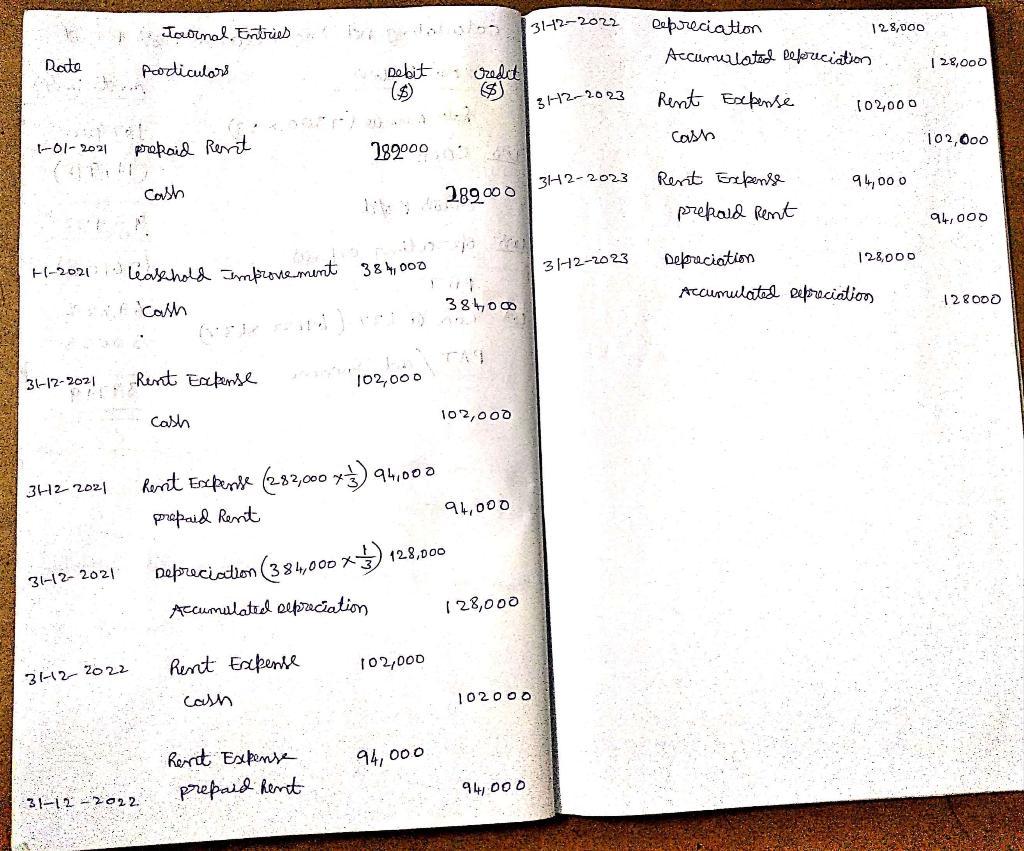 Journal Entries
Date Particulars Debit ($) Credit ($)
1-01-2021 prepaid Rent 282000
Cash 282000
1-1-2021 Leasehold Improvement 384,000
Cash 384,000
31-12-2021 Rent Expense 102,000
Cash 102,000
31-12-2021 Rent Expense (282,000 x 1/3) 94,000
prepaid Rent 94,000
31-12-2021 Depreciation (384,000 x 1/3) 128,000
Accumulated depreciation 128,000
31-12-2022 Rent Expense 102,000
Cash 102000
Rent Expense 94,000
31-12-2022 prepaid Rent 94,000
31-12-2022 Depreciation 128,000
Accumulated Depreciation 128,000
31-12-2023 Rent Expense 102000
Cash 102,000
31-12-2023 Rent Expense 94,000
prepaid Rent 94,000
31-12-2023 Depreciation 128,000
Accumulated Depreciation 128000